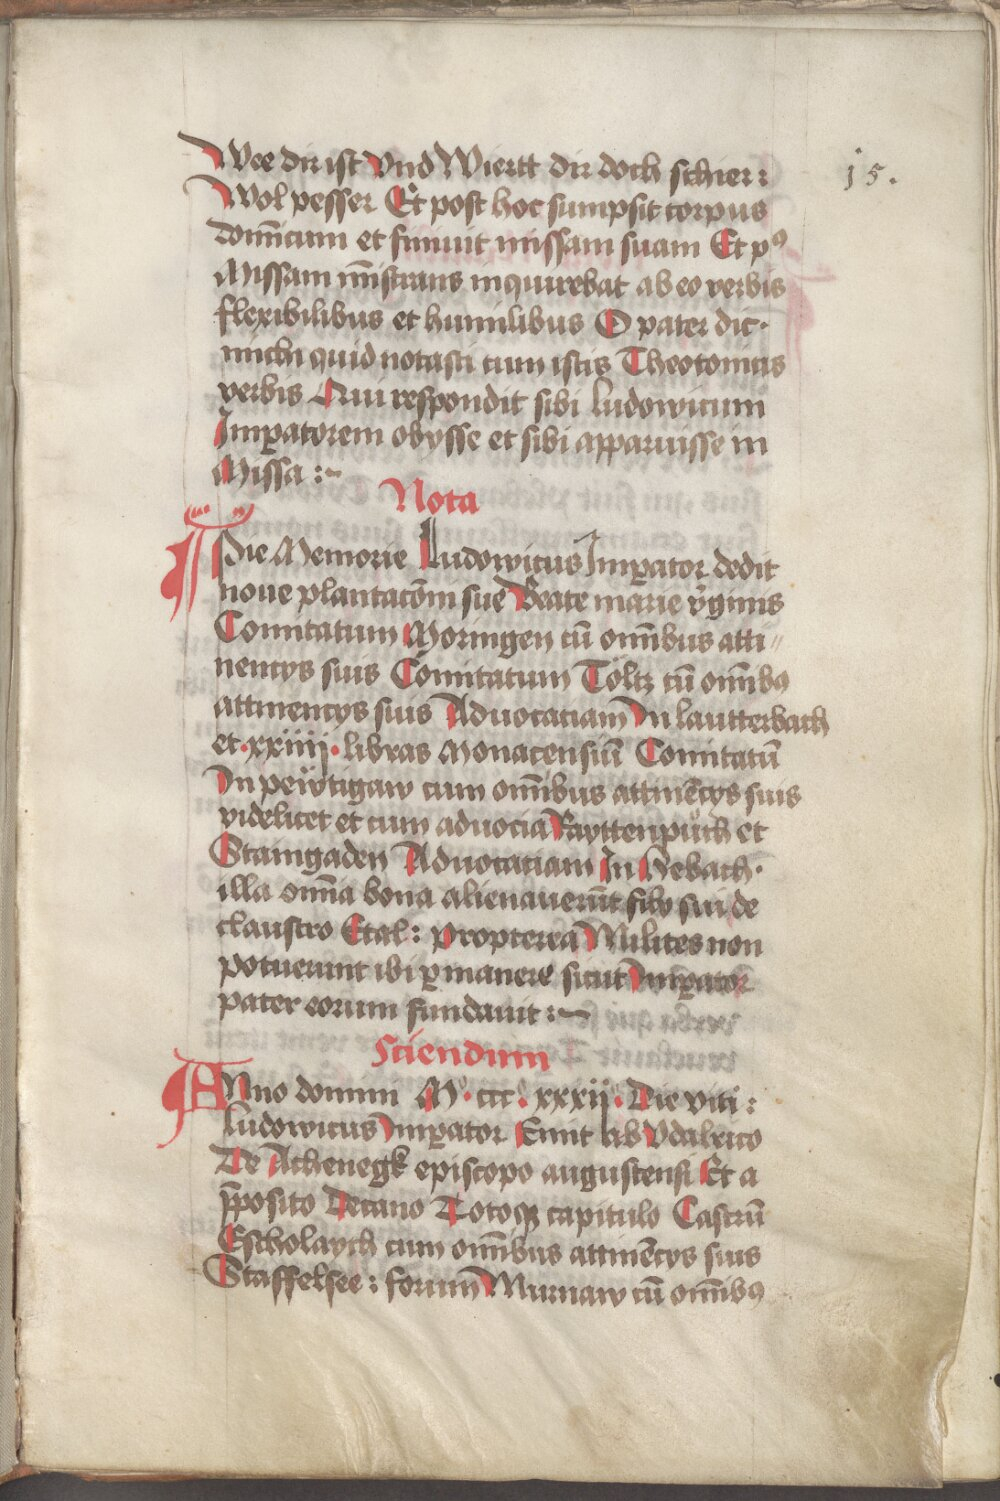 Wee dir ist Vnd Wiertt dir doch schier :
15.
Wol pesser Et post hoc sumpsit corpus
domīcum et finiuit missam suam Et pꝰ
Missam mīstrans inquirebat ab eo verbis
flexibilibus et humilibus O pater dic ·
michi quid notasti cum istis Theotonicis
verbis Qui respondit sibi Ludowicum
Imꝑatorem obysse et sibi apparuisse in
Missa :~
Nota
Pie Memorie Ludowicus Imꝑator dedit
noue plantacōm sue Beate marie v̄ginis
Comitatum Moringen cū om̄ibus atti=
nencys suis Comitatum Töltz cū om̄ibꝰ
attinencys suis Aduocatiam In lautterbach
et · xxiiii · libras Monacensiū Comitatū
In peẅtigaw cum om̄ibus attinēcys suis
videlicet et cum aduocia Rayttenpůch et
Staingaden Aduocatiam In Sebach ·
illa om̄ia bona alienauerūt filÿ sui de
claustro Etal : propterea Milites non
potuerunt ibi ꝑmanere sicut Imꝑator
pater eorum fundauit :~
Sciendum
Anno domini M · ccc · xxxii · Die viti :
Ludowicus Imꝑator Emit ab Vdalrico
De Achenegk episcopo augustensi Et a
p̄posito Decano Totoqꝫ capitulo Castrū
Escholaych cum om̄ibus attinēcys suis
Staffelsee : forum Murnaw cū om̄ibꝰ